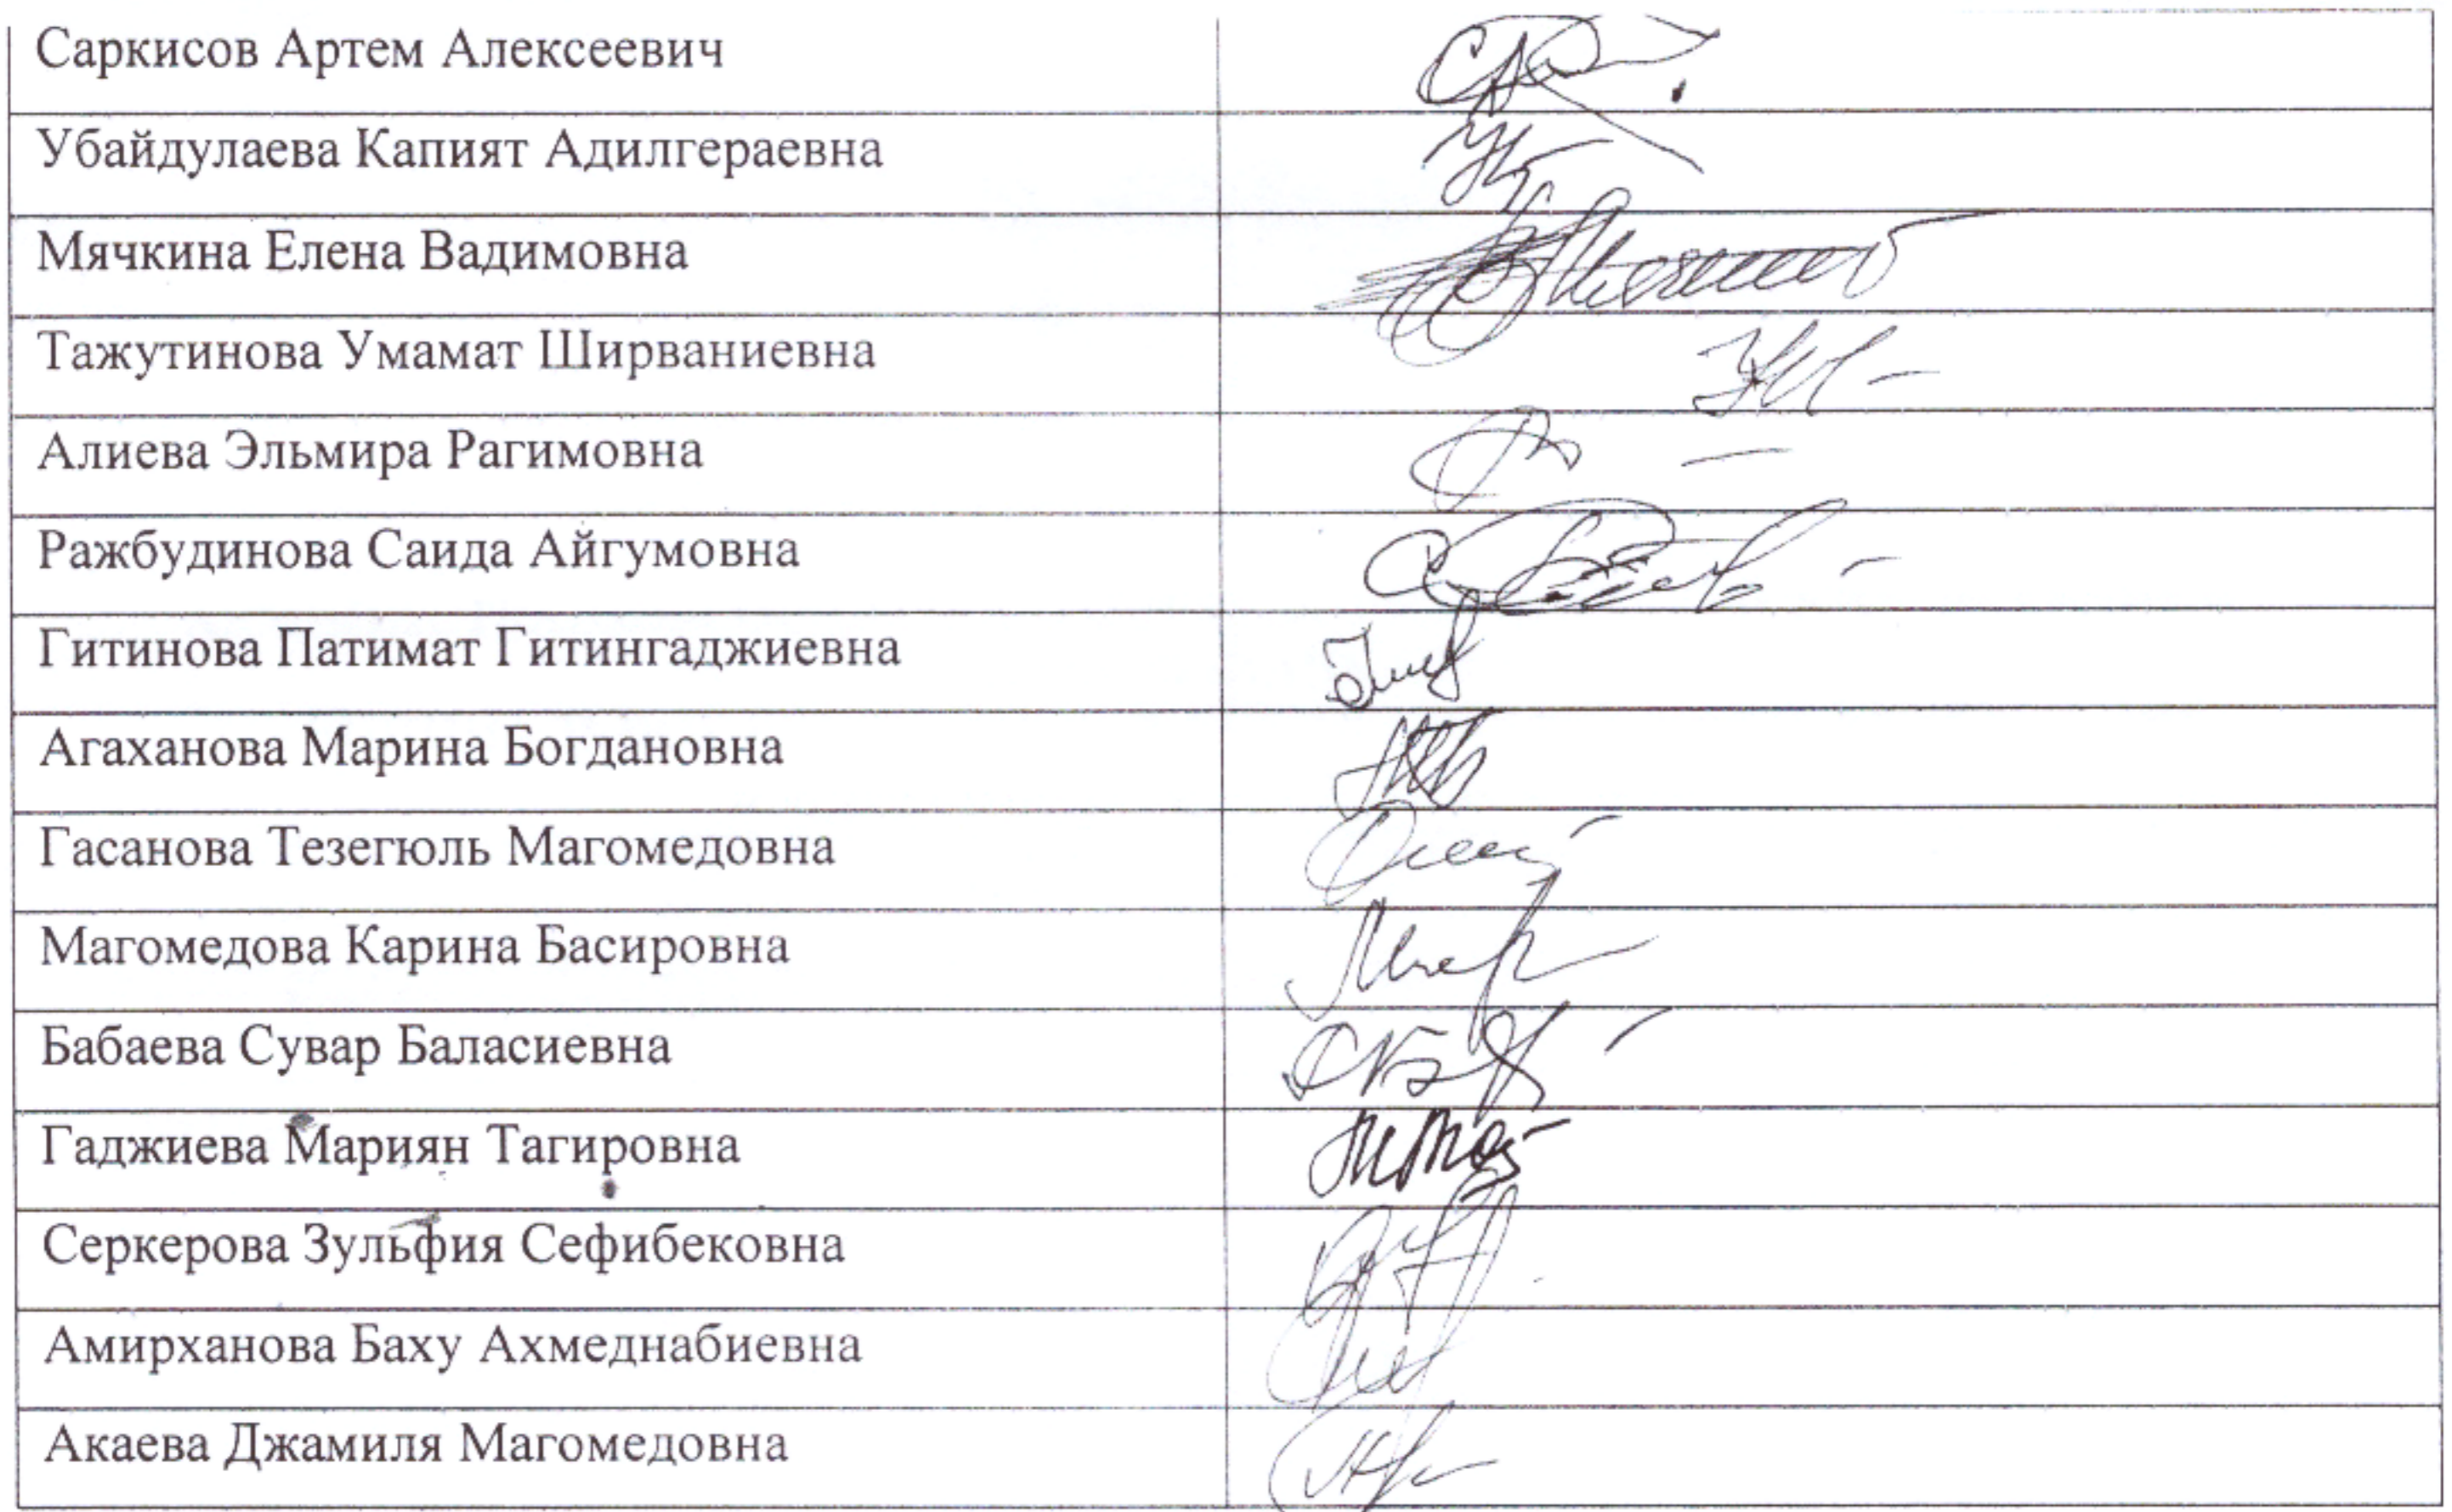 Саркисов Артем Алексеевич
Убайдулаева Капият Адилгераевна
Мячкина Елена Вадимовна
Тажутинова Умамат Ширваниевна
Алиева Эльмира Рагимовна
Ражбудинова Саида Айгумовна
Гитинова Патимат Гитингаджиевна
Агаханова Марина Богдановна
Гасанова Тезегюль Магомедовна
Магомедова Карина Басировна
Бабаева Сувар Баласиевна
Гаджиева Мариян Тагировна
Серкерова Зульфия Сефибековна
Амирханова Баху Ахмеднабиевна
Акаева Джамиля Магомедовна